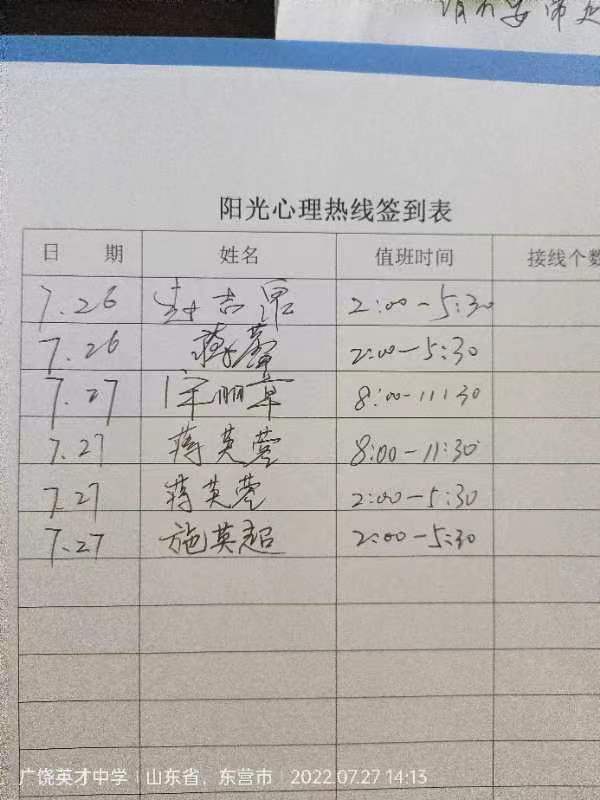 阳光心理热线签到表
日 期 姓名 值班时间 接线个数
7.26 2:00-5:30
7.26 蒋馨 2:00-5:30
7.27 8:00-11:30
7.27 蒋英蓉 8:00-11:30
7.27 蒋英蓉 2:00-5:30
7.27 施英超 2:00-5:30
广饶英才中学 | 山东省、东营市 | 2022.07.27 14:13